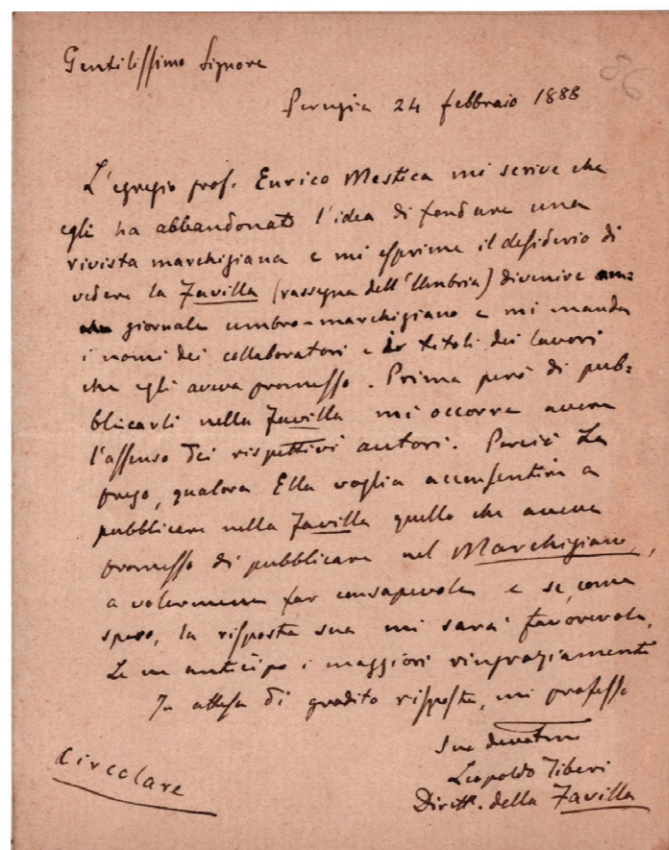 Gentilissimo Signore
86
Perugia 24 febbraio 1888
L'egregio prof. Enrico Mestica mi scrive che
egli ha abbandonato l'idea di fondare una
rivista marchigiana e mi esprime il desiderio di
vedere la Favilla (rassegna dell'Umbria) divenire
giornale umbro-marchigiano e mi manda
i nomi dei collaboratori e i titoli dei lavori
che egli aveva promesso. Prima però di pub=
blicarli nella Favilla mi occorre avere
l'assenso dei rispettivi autori. Perciò La
prego, qualora Ella voglia acconsentire a
pubblicare nella Favilla quello che aveva
promesso di pubblicare nel Marchigiano,
a volermene far consapevole e se, come
spero, la risposta sua mi sarà favorevole,
Le ne anticipo i maggiori ringraziamenti
In attesa di gradita risposta, mi professo
Suo
Leopoldo Tiberi
Dirett. della Favilla
Circolare